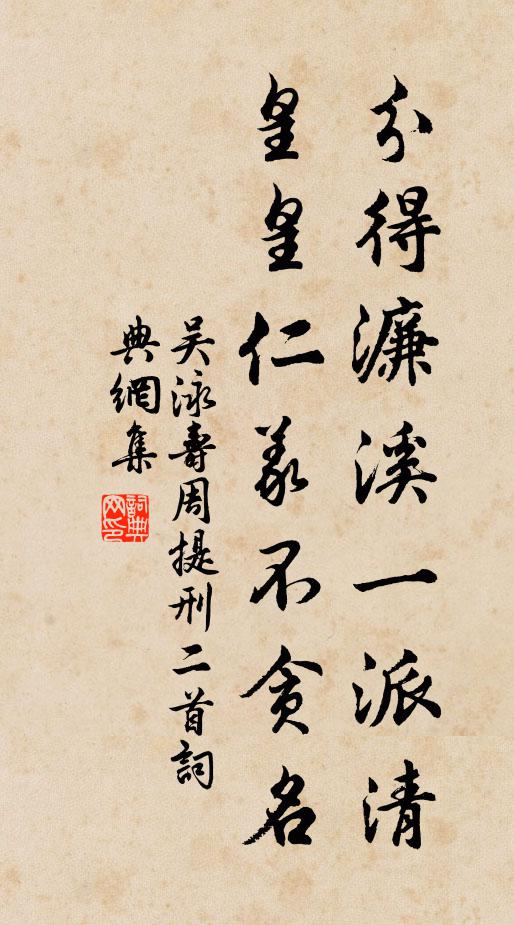 分得濂溪一派清
皇皇仁義不貪名
吴泳壽周提刑二首詞
典網集
詞典
网印